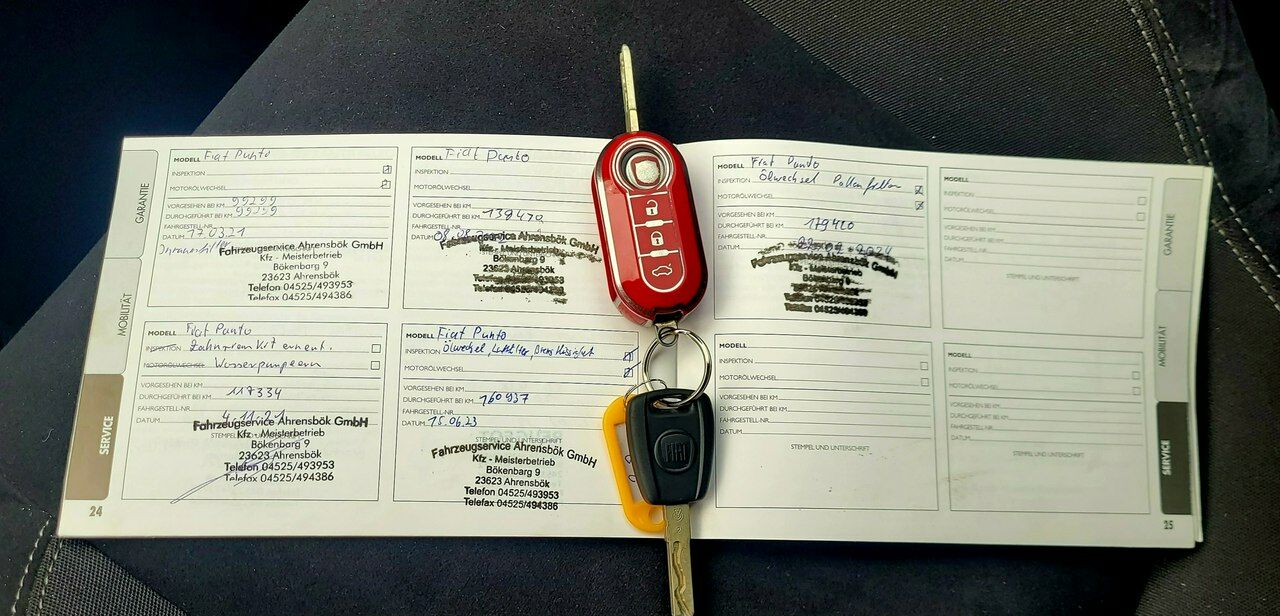 GARANTIE
MOBILITÄT
SERVICE
24
MODELL Fiat Punto
INSPEKTION
MOTORÖLWECHSEL
VORGESEHEN BEI KM 99299
DURCHGEFÜHRT BEI KM 99299
FAHRGESTELL-NR.
DATUM 17.03.21
Fahrzeugservice Ahrensbök GmbH
Kfz - Meisterbetrieb
Bökenbarg 9
23623 Ahrensbök
Telefon 04525/493953
Telefax 04525/494386
MODELL Fiat Punto
INSPEKTION Zahnriemen Kit erneut.
MOTORÖLWECHSEL Wasserpumpe
VORGESEHEN BEI KM
DURCHGEFÜHRT BEI KM 117334
FAHRGESTELL-NR.
DATUM
Fahrzeugservice Ahrensbök GmbH
Kfz - Meisterbetrieb
Bökenbarg 9
23623 Ahrensbök
Telefon 04525/493953
Telefax 04525/494386
MODELL Fiat Punto
INSPEKTION
MOTORÖLWECHSEL
VORGESEHEN BEI KM
DURCHGEFÜHRT BEI KM 139470
FAHRGESTELL-NR.
DATUM
Fahrzeugservice Ahrensbök GmbH
Kfz - Meisterbetrieb
Bökenbarg 9
23623 Ahrensbök
MODELL Fiat Punto
INSPEKTION Ölwechsel,
MOTORÖLWECHSEL
VORGESEHEN BEI KM
DURCHGEFÜHRT BEI KM 160937
FAHRGESTELL-NR.
DATUM 15.06.23
STEMPEL UND UNTERSCHRIFT
Fahrzeugservice Ahrensbök GmbH
Kfz - Meisterbetrieb
Bökenbarg 9
23623 Ahrensbök
Telefon 04525/493953
Telefax 04525/494386
FIAT
MODELL Fiat Punto
INSPEKTION Ölwechsel Pollenfilter
MOTORÖLWECHSEL
VORGESEHEN BEI KM
DURCHGEFÜHRT BEI KM 179420
FAHRGESTELL-NR.
DATUM
Fahrzeugservice Ahrensbök GmbH
Kfz - Meisterbetrieb
Bökenbarg 9
23623 Ahrensbök
MODELL
INSPEKTION
MOTORÖLWECHSEL
VORGESEHEN BEI KM
DURCHGEFÜHRT BEI KM
FAHRGESTELL-NR.
DATUM
STEMPEL UND UNTERSCHRIFT
MODELL
INSPEKTION
MOTORÖLWECHSEL
VORGESEHEN BEI KM
DURCHGEFÜHRT BEI KM
FAHRGESTELL-NR.
DATUM
STEMPEL UND UNTERSCHRIFT
MODELL
INSPEKTION
MOTORÖLWECHSEL
VORGESEHEN BEI KM
DURCHGEFÜHRT BEI KM
FAHRGESTELL-NR.
DATUM
STEMPEL UND UNTERSCHRIFT
GARANTIE
MOBILITÄT
SERVICE
25